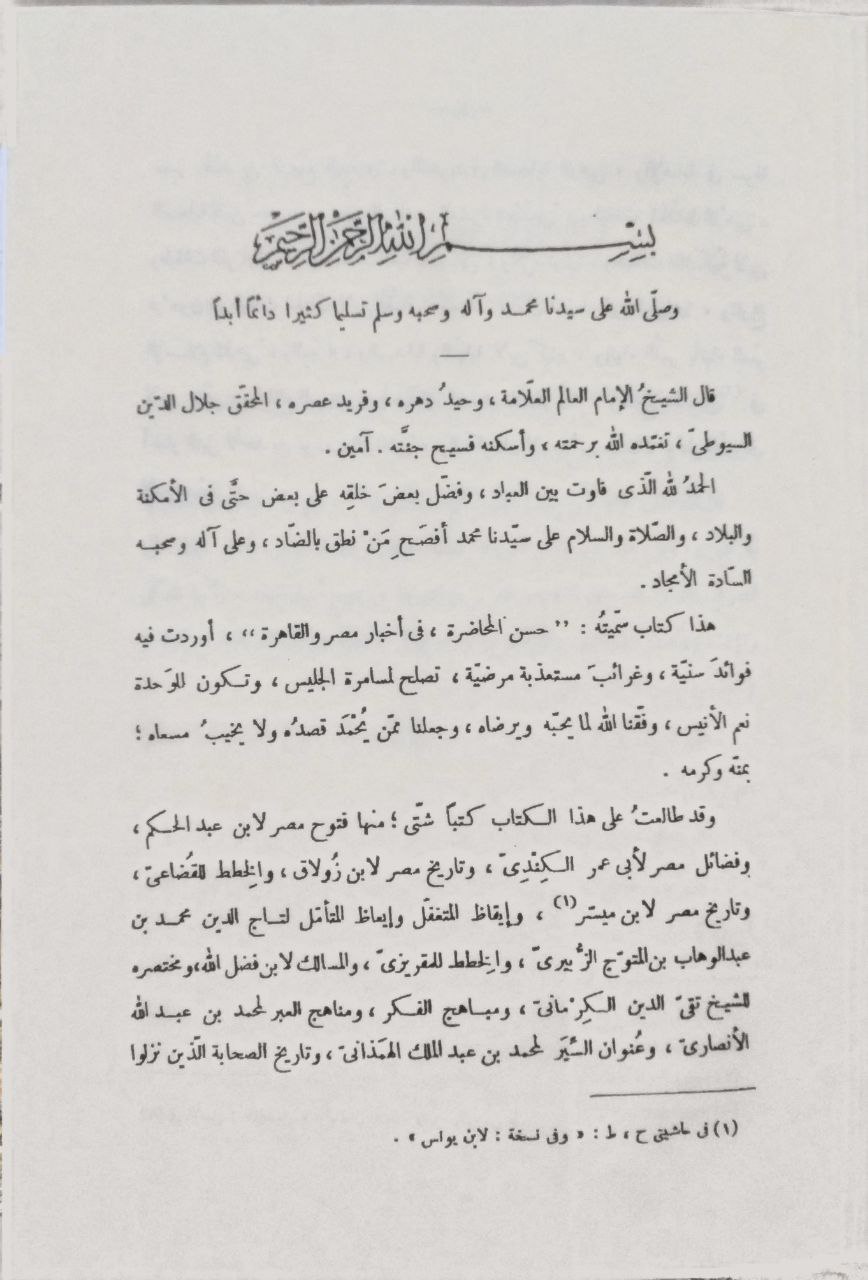 بسم الله الرحمن الرحيم
وصلّى الله على سيدنا محمد وآله وصحبه وسلم تسليما كثيرا دائمًا أبدًا
قال الشيخُ الإمام العالم العلّامة ، وحيدُ دهره ، وفريد عصره ، المحقّق جلال الدّين
السيوطىّ ، تغمّده الله برحمته ، وأسكنه فسيح جنَّته . آمين .
الحمدُ لله الّذى فاوت بين العباد ، وفضّل بعضَ خلقِه على بعض حتَّى فى الأمكنة
والبلاد ، والصّلاة والسلام على سيّدنا محمد أفصَح ِ مَنْ نطق بالضّاد ، وعلى آله وصحبه
السّادة الأمجاد .
هذا كتاب سمّيتُه : ” حسن المحاضرة ، فى أخبار مصر والقاهرة “ ، أوردت فيه
فوائدَ سنيّة ، وغرائبَ مستعذبة مرضيّة ، تصلح لمسامرة الجليس ، وتكون للوَحدة
نعم الأنيس ، وفّقنا الله لما يحبّه ويرضاه ، وجعلنا ممّن يُحْمَدَ قصدُه ولا يخيبُ مسعاه ؛
بمنّه وكرمه .
وقد طالعتُ على هذا الكتاب كتبًا شتّى ؛ منها فتوح مصر لابن عبد الحكم ،
وفضائل مصر لأبى عمر الكِنْدِىّ ، وتاريخ مصر لابن زُولاق ، والخِطط للقُضاعىّ ،
وتاريخ مصر لابن ميسّر (١) ، وإيقاظ المتغفّل وإيعاظ المتأمّل لتاج الدين محمد بن
عبدالوهاب بن المتوّج الزُّبيرىّ ، والخِطط للمقريزىّ ، والمسالك لابن فضل الله، ومختصره
للشيخ تقىّ الدين الكِرْمانىّ ، ومباهج الفكر ، ومناهج العبر لمحمد بن عبد الله
الأنصارىّ ، وعُنوان السِّيَر لمحمد بن عبد الملك الهمَذانىّ ، وتاريخ الصحابة الّذين نزلوا
(١) فى حاشيتى ح ، ط : « وفى نسخة : لابن يواس » .